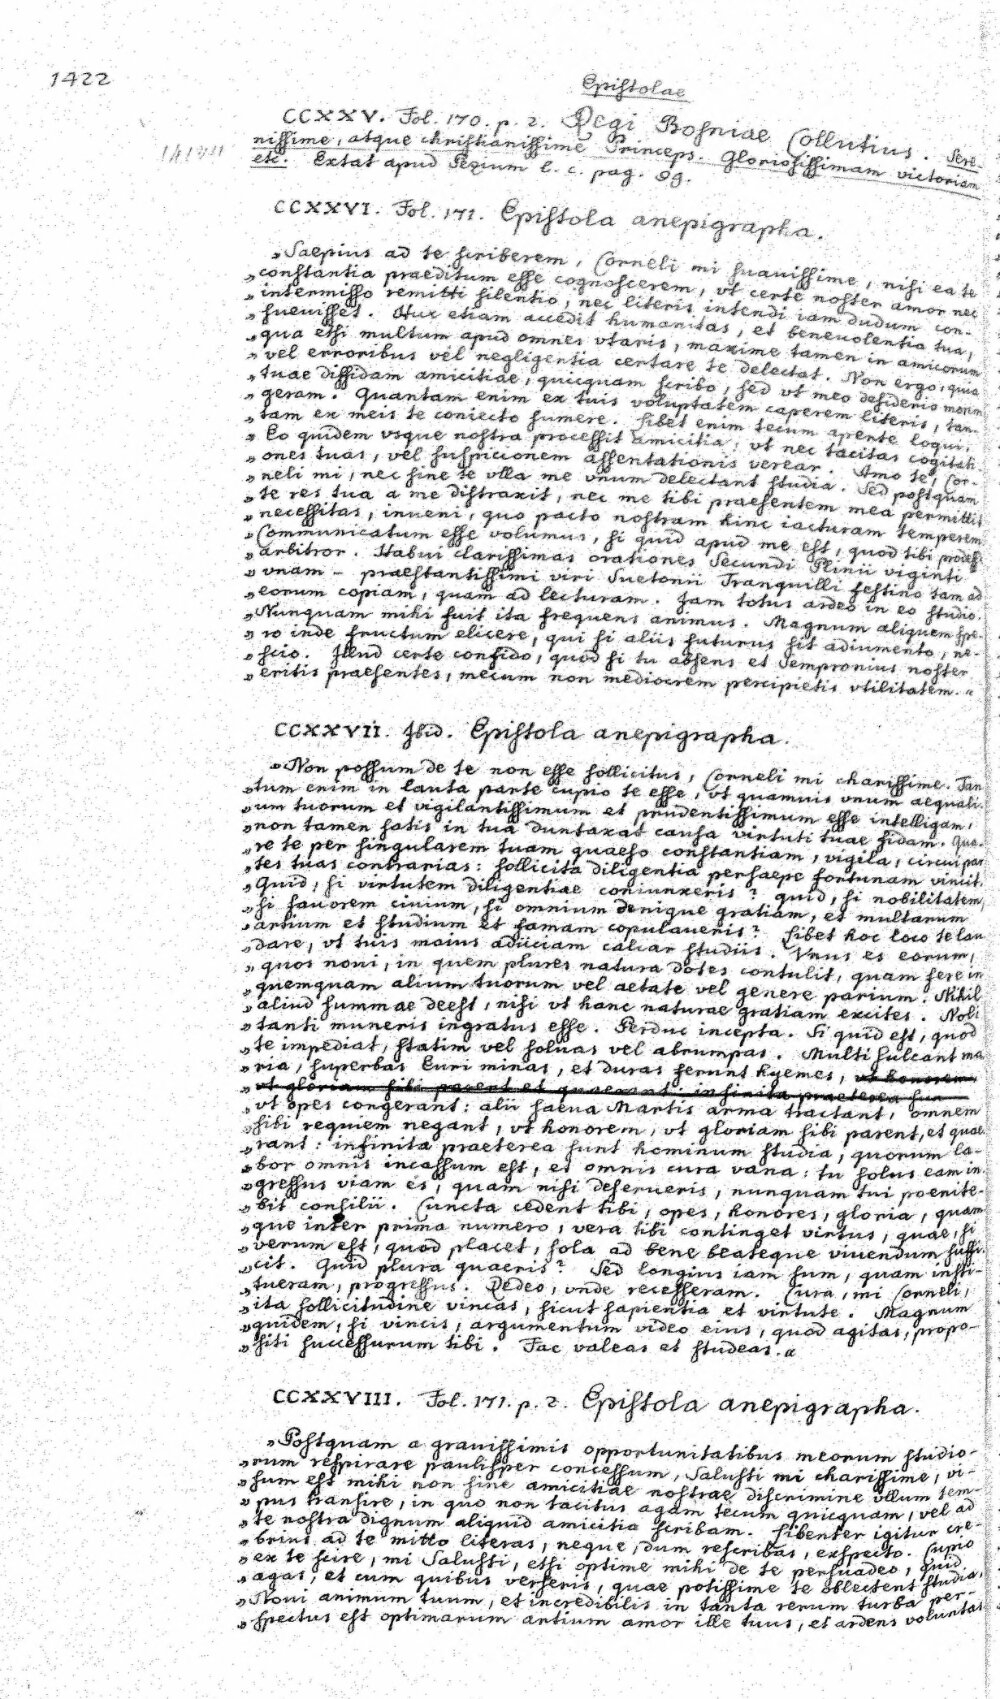 1422
Epistolae
CCXXV. Fol. 170. p. 2. Regi Bosniae Collutius. Sere-
nissime, atque christianissime Princeps. Gloriosissimam victoriam
etc. Extat apud Pezium l. c. pag. 89.
CCXXVI. Fol. 171. Epistola anepigrapha.
„Saepius ad te scriberem, Corneli mi suauissime, nisi ea te
„constantia praeditum esse cognoscerem, vt certe noster amor nec
„intermisso remitti silentio, nec literis intendi iam dudum con-
„sueuisset. Huc etiam accedit humanitas, et beneuolentia tua,
„qua etsi multum apud omnes vtaris, maxime tamen in amicorum
„vel erroribus vel negligentia certare te delectat. Non ergo, quia
„tuae diffidam amicitiae, quicquam scribo, sed vt meo desiderio morem
„geram. Quantam enim ex tuis voluptatem caperem literis, tan-
„tam ex meis te coniecto sumere. Libet enim tecum aperte loqui.
„Eo quidem vsque nostra processit amicitia, vt nec tacitas cogitati-
„ones tuas, vel suspicionem assentationis verear. Amo te, Cor-
„neli mi, nec sine te vlla me vnum delectant studia. Sed postquam
„te res tua a me distraxit, nec me tibi praesentem mea permittit
„necessitas, inueni, quo pacto nostram hinc iacturam temperem.
„Communicatum esse volumus, si quid apud me est, quod tibi prodesse
„arbitror. Habui clarissimas orationes Secundi Plinii viginti
„vnam – praestantissimi viri Suetonii Tranquilli festino tam ad
„eorum copiam, quam ad lecturam. Iam totus ardeo in eo studio.
„Nunquam mihi fuit ita frequens animus. Magnum aliquem spe-
„ro inde fructum elicere, qui si aliis futurus sit adiumento, ne-
„scio. Illud certe confido, quod si tu absens et Sempronius noster
„eritis praesentes, mecum non mediocrem percipietis vtilitatem.“
CCXXVII. Ibid. Epistola anepigrapha.
„Non possum de te non esse sollicitus, Corneli mi charissime. Tan-
„tum enim in lauta parte cupio te esse, vt quamuis vnum aequali-
„um tuorum et vigilantissimum et prudentissimum esse intelligam,
„non tamen satis in tua duntaxat causa virtuti tuae fidam. Qua-
„re te per singularem tuam quaeso constantiam, vigila, circui par-
„tes tuas contrarias: sollicita diligentia persaepe fortunam vincit.
„Quid, si virtutem diligentiae coniunxeris? quid, si nobilitatem,
„si fauorem ciuium, si omnium denique gratiam, et multarum
„artium et studium et famam copulaueris? Libet hoc loco te lau-
„dare, vt tuis maius adiiciam calcar studiis. Vnus es eorum,
„quos noui, in quem plures natura dotes contulit, quam fere in
„quemquam alium tuorum vel aetate vel genere parium. Nihil
„aliud summae deest, nisi vt hanc naturae gratiam excites. Noli
„tanti muneris ingratus esse. Perduc incepta. Si quid est, quod
„te impediat, statim vel soluas vel abrumpas. Multi sulcant ma-
„ria, superbas Euri minas, et duras ferunt hyemes, vt honorem
„vt gloriam sibi parent et quaerant: infinita praeterea sun
„vt opes congerant: alii saeua Martis arma tractant, omnem
„sibi requiem negant, vt honorem, vt gloriam sibi parent, et quae-
„rant: infinita praeterea sunt hominum studia, quorum la-
„bor omnis incassum est, et omnis cura vana: tu solus eam in-
„gressus viam es, quam nisi deserueris, nunquam tui poenite-
„bit consilii. Cuncta cedent tibi, opes, honores, gloria, quam-
„que inter prima numero, vera tibi continget virtus, quae, si
„verum est, quod placet, sola ad bene beateque viuendum suffi-
„cit. Quid plura quaeris? Sed longius iam sum, quam insti-
„tueram, progressus. Redeo, vnde recesseram. Cura, mi Corneli,
„ita sollicitudine vincas, sicut sapientia et virtute. Magnum
„quidem, si vincis, argumentum video eius, quod agitas, propo-
„siti successurum tibi. Fac valeas et studeas.“
CCXXVIII. Fol. 171. p. 2. Epistola anepigrapha.
„Postquam a grauissimis opportunitatibus meorum studio-
„rum respirare paulisper concessum, Salusti mi charissime, vi-
„sum est mihi non sine amicitiae nostrae discrimine vllum tem-
„pus transire, in quo non tacitus agam tecum quicquam, vel ad
„te nostra dignum aliquid amicitia scribam. Libenter igitur cre-
„brius ad te mitto literas, neque, dum rescribas, exspecto. Cupio
„ex te scire, mi Salusti, etsi optime mihi de te persuadeo, quid
„agas, et cum quibus verseris, quae potissime te oblectent studia.
„Noui animum tuum, et incredibilis in tanta rerum turba per-
„spectus est optimarum artium amor ille tuus, et ardens voluntas